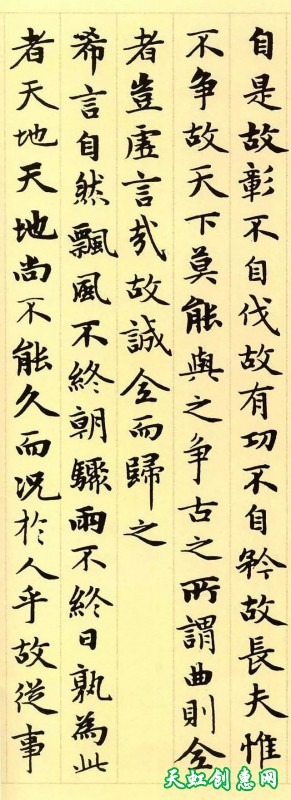 自是故彰不自伐故有功不自矜故長夫惟
不争故天下莫能與之争古之所謂曲則全
者豈虚言哉故誠全而歸之
希言自然飄風不終朝驟雨不終日孰為此
者天地天地尚不能久而况於人乎故從事
天虹创惠网